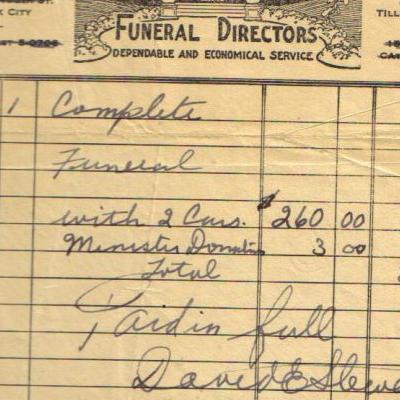 CITY
TILL
FUNERAL DIRECTORS
DEPENDABLE AND ECONOMICAL SERVICE
1 Complete
Funeral
with 2 Cars. $260 00
Minister Donation 3 00
Total
Paid in full
David E